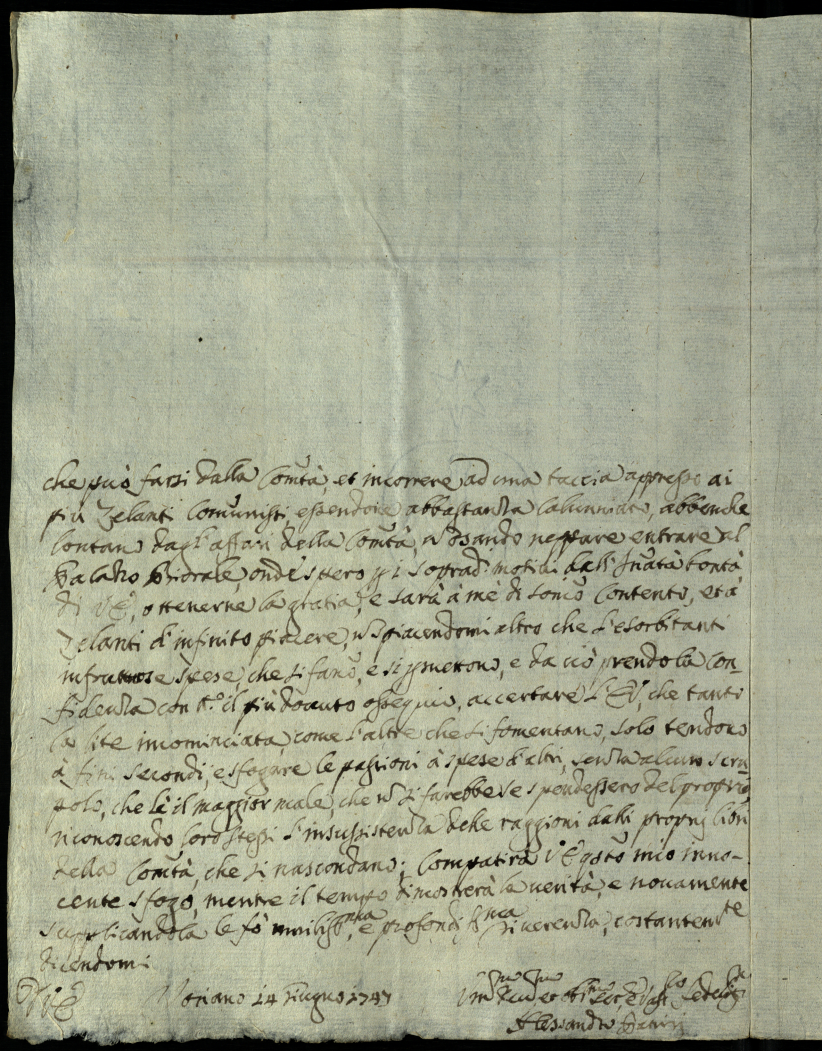 che può farsi dalla Com:tà, et incorrere ad una taccia appresso ai
più Zelanti Comunisti, essendone abbastanza Calunniato, abbenche
lontano dagl'affari della Com:tà, nõ osando neppure entrare al
Palazzo Priorale, ond'è spero p i soprad: motivi dall'Innata bontà
di V E, ottenerne la gratia, e sarà à mè di sommo Contento, et à
Zelanti d'infinito piacere, nõ spiacendomi altro che l'esorbitanti
infruttuose spese, che si fanno, e si permettono, e da ciò prendo la con-
fidenza con il più dovuto ossequio, accertare l'E V, che tanto
la lite incominciata, come l'altre che si fomentano, solo tendono
à fini secondi, e sfogare le passioni à spese d'altri, senza alcuno scru-
polo, che è il maggior male, che nõ si farebbe se spendessero del proprio
riconoscendo loro stessi l'insussistenza delle raggioni dalli proprij libri
della Com:tà, che si nascondano; Compatirà V E qsto mio inno-
cente sfogo, mentre il tempo dimostrerà la verità, e novamente
supplicandola le fò umiliss:ma, e profondiss:ma riverenza, costantem:te
dicendomi
Di V E
24 Giugno 1747
Alessandro